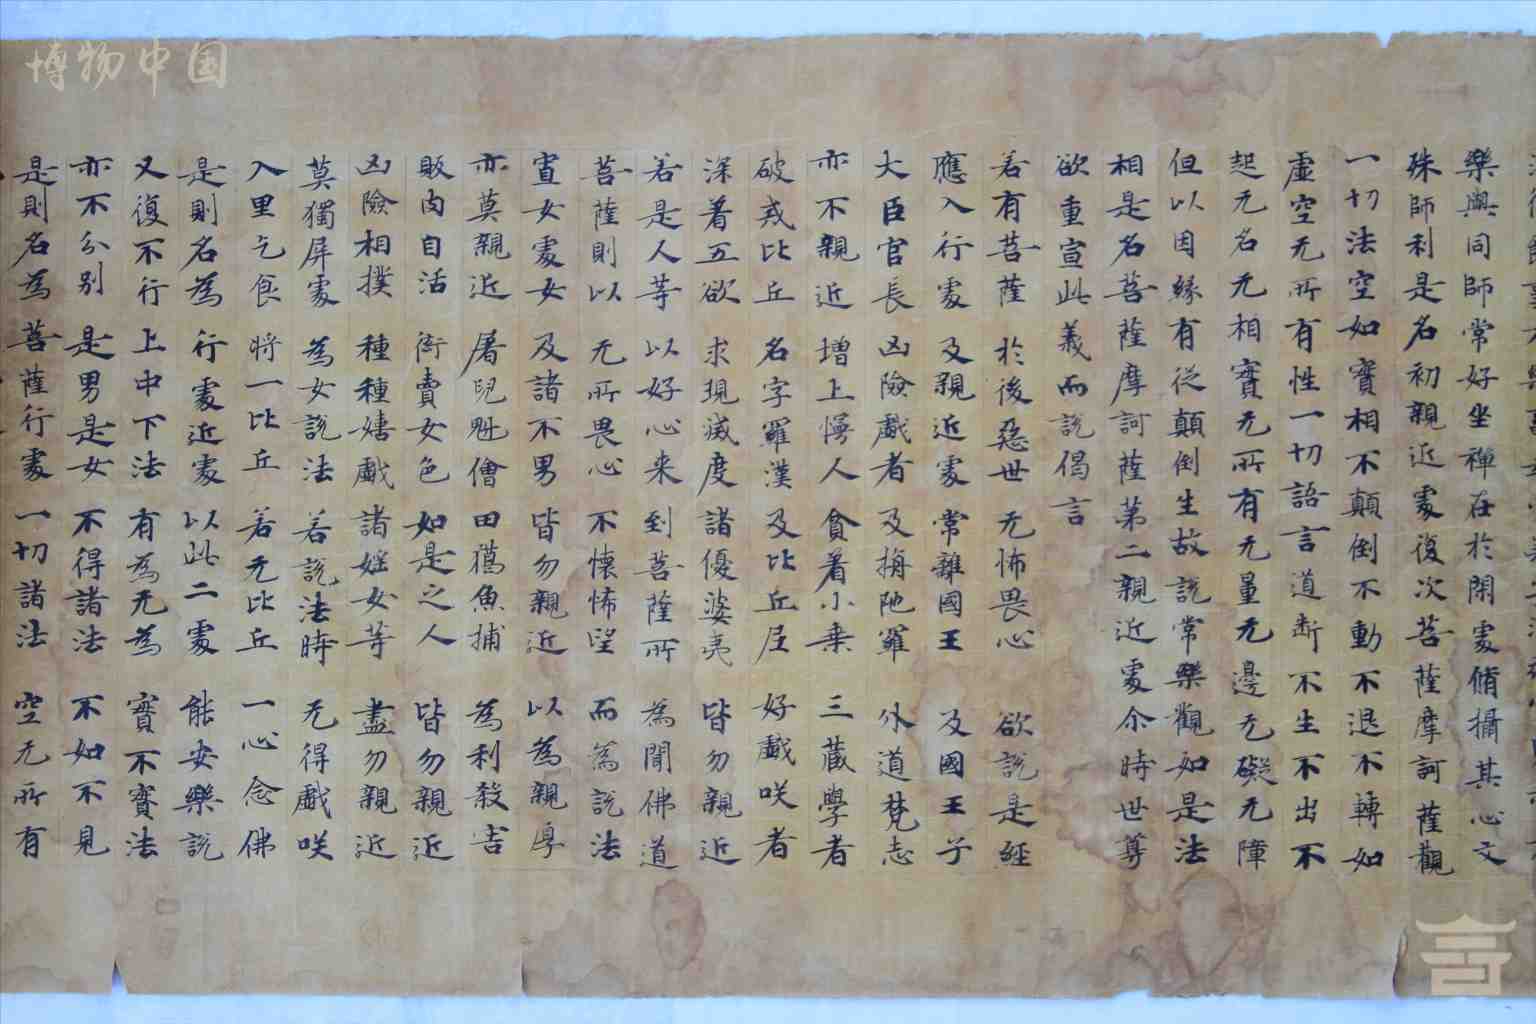 博物中国
樂與同師常好坐禪在於閑處脩攝其心文
殊師利是名初親近處復次菩薩摩訶薩觀
一切法空如實相不顛倒不動不退不轉如
虛空无所有性一切語言道斷不生不出不
起无名无相實无所有无量无邊无礙无障
但以因緣有從顛倒生故說常樂觀如是法
相是名菩薩摩訶薩第二親近處尒時世尊
欲重宣此義而說偈言
若有菩薩 於後惡世 无怖畏心 欲說是經
應入行處 及親近處 常離國王 及國王子
大臣官長 凶險戲者 及旃陁羅 外道梵志
亦不親近 增上慢人 貪着小乘 三藏學者
破戒比丘 名字羅漢 及比丘尼 好戲咲者
深着五欲 求現滅度 諸優婆夷 皆勿親近
若是人等 以好心来 到菩薩所 為聞佛道
菩薩則以 无所畏心 不懷悕望 而為說法
寡女處女 及諸不男 皆勿親近 以為親厚
亦莫親近 屠兒魁儈 田獦魚捕 為利殺害
販肉自活 衒賣女色 如是之人 皆勿親近
凶險相撲 種種嬉戲 諸婬女等 盡勿親近
莫獨屏處 為女說法 若說法時 无得戲咲
入里乞食 將一比丘 若无比丘 一心念佛
是則名為 行處近處 以此二處 能安樂說
又復不行 上中下法 有為无為 實不實法
亦不分別 是男是女 不得諸法 不如不見
是則名為 菩薩行處 一切諸法 空无所有